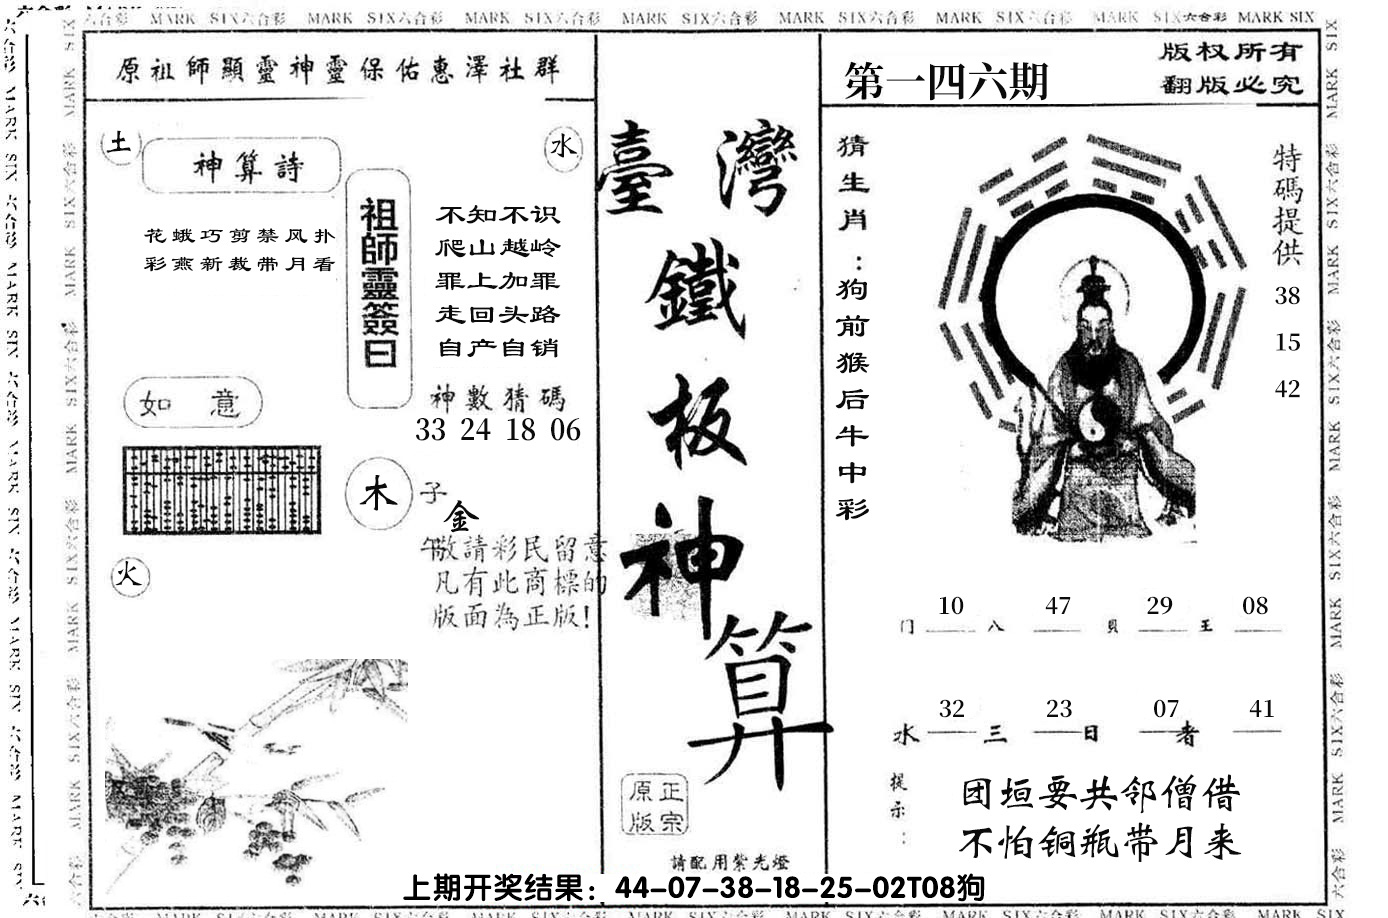 六合彩 MARK SIX六合彩 MARK SIX六合彩 MARK SIX六合彩 MARK SIX六合彩 MARK SIX六合彩 MARK SIX六合彩 MARK SIX六合彩 MARK SIX
原祖師顯靈神靈保佑惠澤社群
土
神算詩
水
花蛾巧剪禁风扑
彩燕新裁带月看
祖師靈簽曰
不知不识
爬山越岭
罪上加罪
走回头路
自产自销
如意
神數猜碼
33 24 18 06
木
子
金
午
火
敬請彩民留意
凡有此商標的
版面為正版!
臺灣
鐵
板
神
算
正宗
原版
請配用紫光燈
第一四六期
版权所有
翻版必究
猜生肖：狗前猴后牛中彩
特碼提供
38
15
42
10 47 29 08
门 八 貝 王
32 23 07 41
水 三 日 者
提示：
团垣要共邻僧借
不怕铜瓶带月来
上期开奖结果：44-07-38-18-25-02T08狗